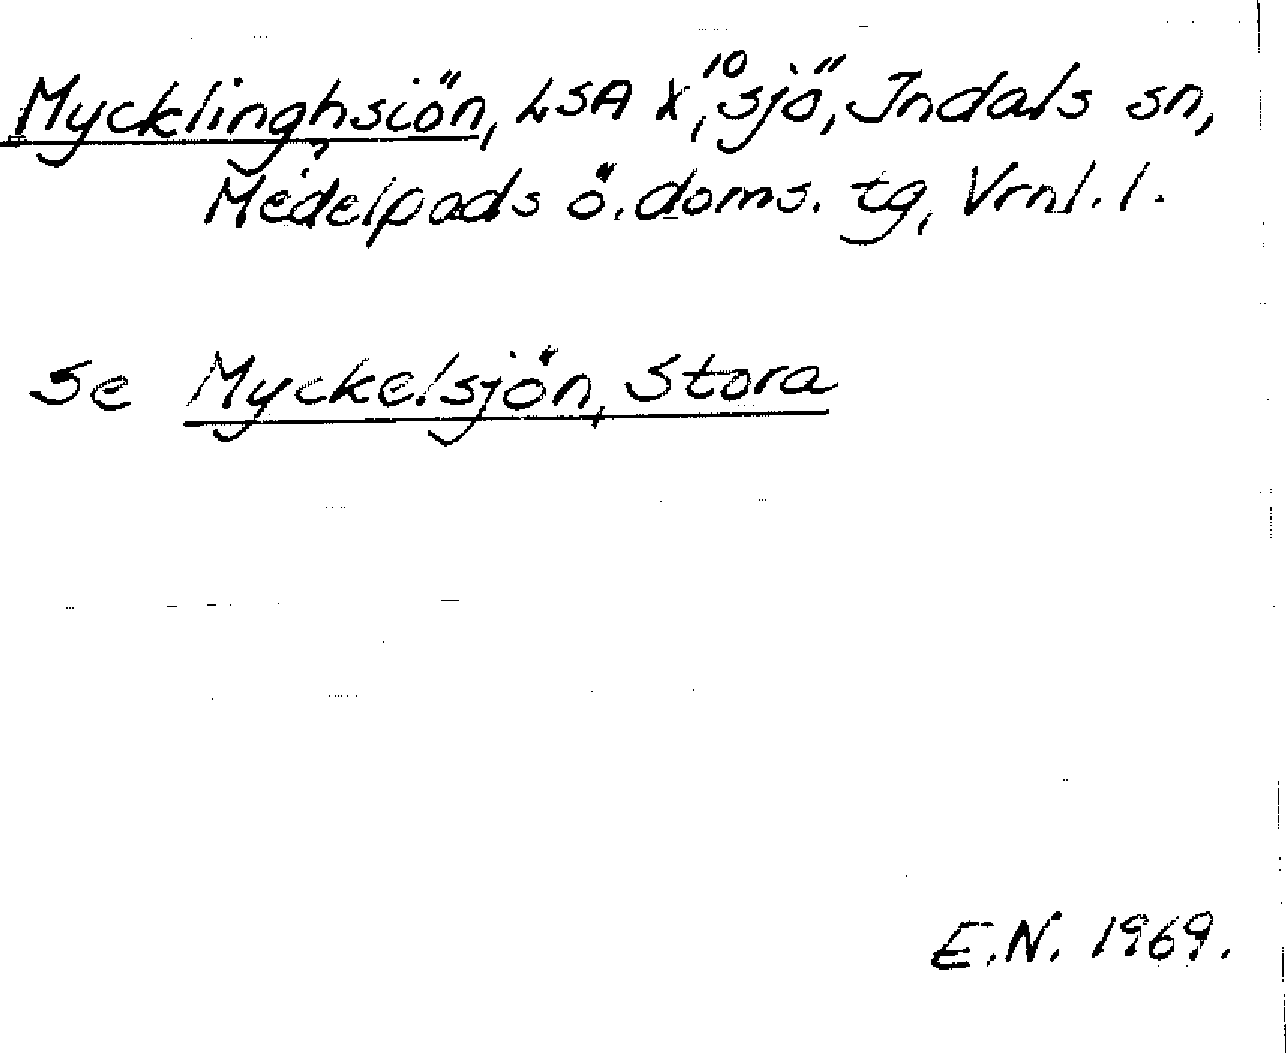 Mycklinghsiön, LSA X,¹⁰ sjö, Indals sn,
Medelpads ö. doms. tg, Vrnl. l.
Se Myckelsjön, Stora
E.N. 1969.